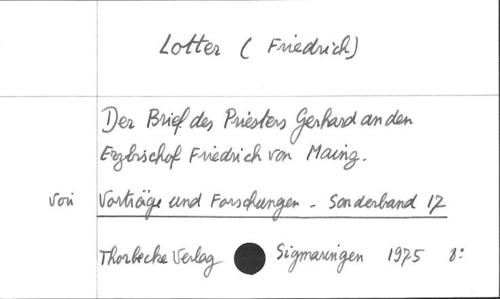 Lotter ( Friedrich)
Der Brief des Priesters Gerhard an den
Erzbischof Friedrich von Mainz.
Voir Vorträge und Forschungen - Sonderband 17
Thorbecke Verlag Sigmaringen 1975 8°